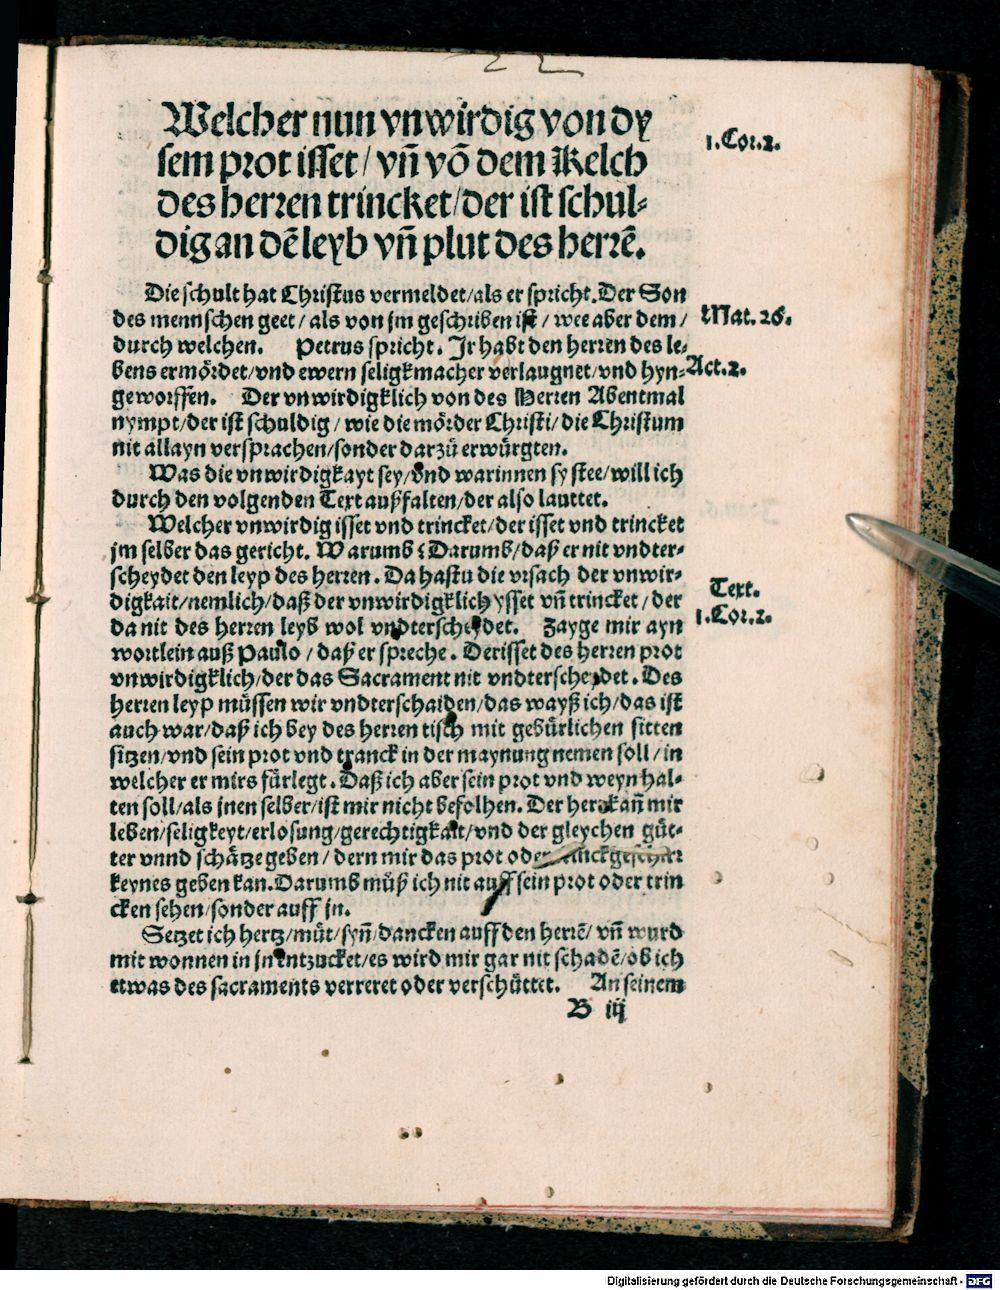 22
Welcher nun vnwirdig von dy
sem prot isset / vñ võ dem Kelch
des herren trincket/der ist schul-
dig an dē leyb vñ plut des herrē.
1.Cor.2.
Die schult hat Christus vermeldet/als er spricht.Der Son
des mennschen geet / als von jm geschriben ist / wee aber dem /
Mat.26.
durch welchen. Petrus spricht. Jr habt den herren des le-
bens ermördet/vnd ewern seligkmacher verlaugnet/vnd hyn-
Act.2.
geworffen. Der vnwirdigklich von des Herren Abentmal
nympt/der ist schuldig / wie die mörder Christi/die Christum
nit allayn versprachen/sonder darzů erwürgten.
Was die vnwirdigkayt sey/vnd warinnen sy stee/will ich
durch den volgenden Text außfalten/der also lauttet.
Welcher vnwirdig isset vnd trincket/der isset vnd trincket
jm selber das gericht. Warumb? Darumb/daß er nit vndter-
scheydet den leyp des herren. Da hastu die vrsach der vnwir-
Text.
digkait/nemlich/daß der vnwirdigklich ysset vñ trincket / der
1.Cor.2.
da nit des herren leyb wol vndterscheydet. Zayge mir ayn
wortlein auß Paulo / daß er spreche. Der isset des herren prot
vnwirdigklich/der das Sacrament nit vndterscheydet. Des
herren leyp müssen wir vndterschaiden/das wayß ich/das ist
auch war/daß ich bey des herren tisch mit gebürlichen sitten
sitzen/vnd sein prot vnd tranck in der maynung nemen soll / in
welcher er mirs fürlegt. Daß ich aber sein prot vnd weyn hal-
ten soll/als jnen selber/ist mir nicht befolhen. Der her kañ mir
leben/seligkeyt/erlosung/gerechtigkait/vnd der gleychen güt-
ter vnnd schätze geben / dern mir das prot oder
keynes geben kan.Darumb müß ich nit auff sein prot oder trin
cken sehen/sonder auff jn.
Setzet ich hertz/müt/syñ/dancken auff den herrē/ vñ wurd
mit wonnen in jn entzucket/es wird mir gar nit schadē/ob ich
etwas des sacraments verreret oder verschüttet. An seinem
B iij
Digitalisierung gefördert durch die Deutsche Forschungsgemeinschaft - DFG